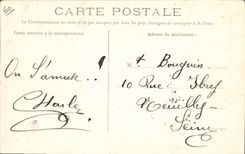 CARTE POSTALE
La Correspondance au recto n'est pas acceptée par tous les pays étrangers
Partie réservée à la correspondance
Adresse du destinataire
On s'amuse!!
Charles
M. Bouquin
10 Rue
Neuilly
Seine